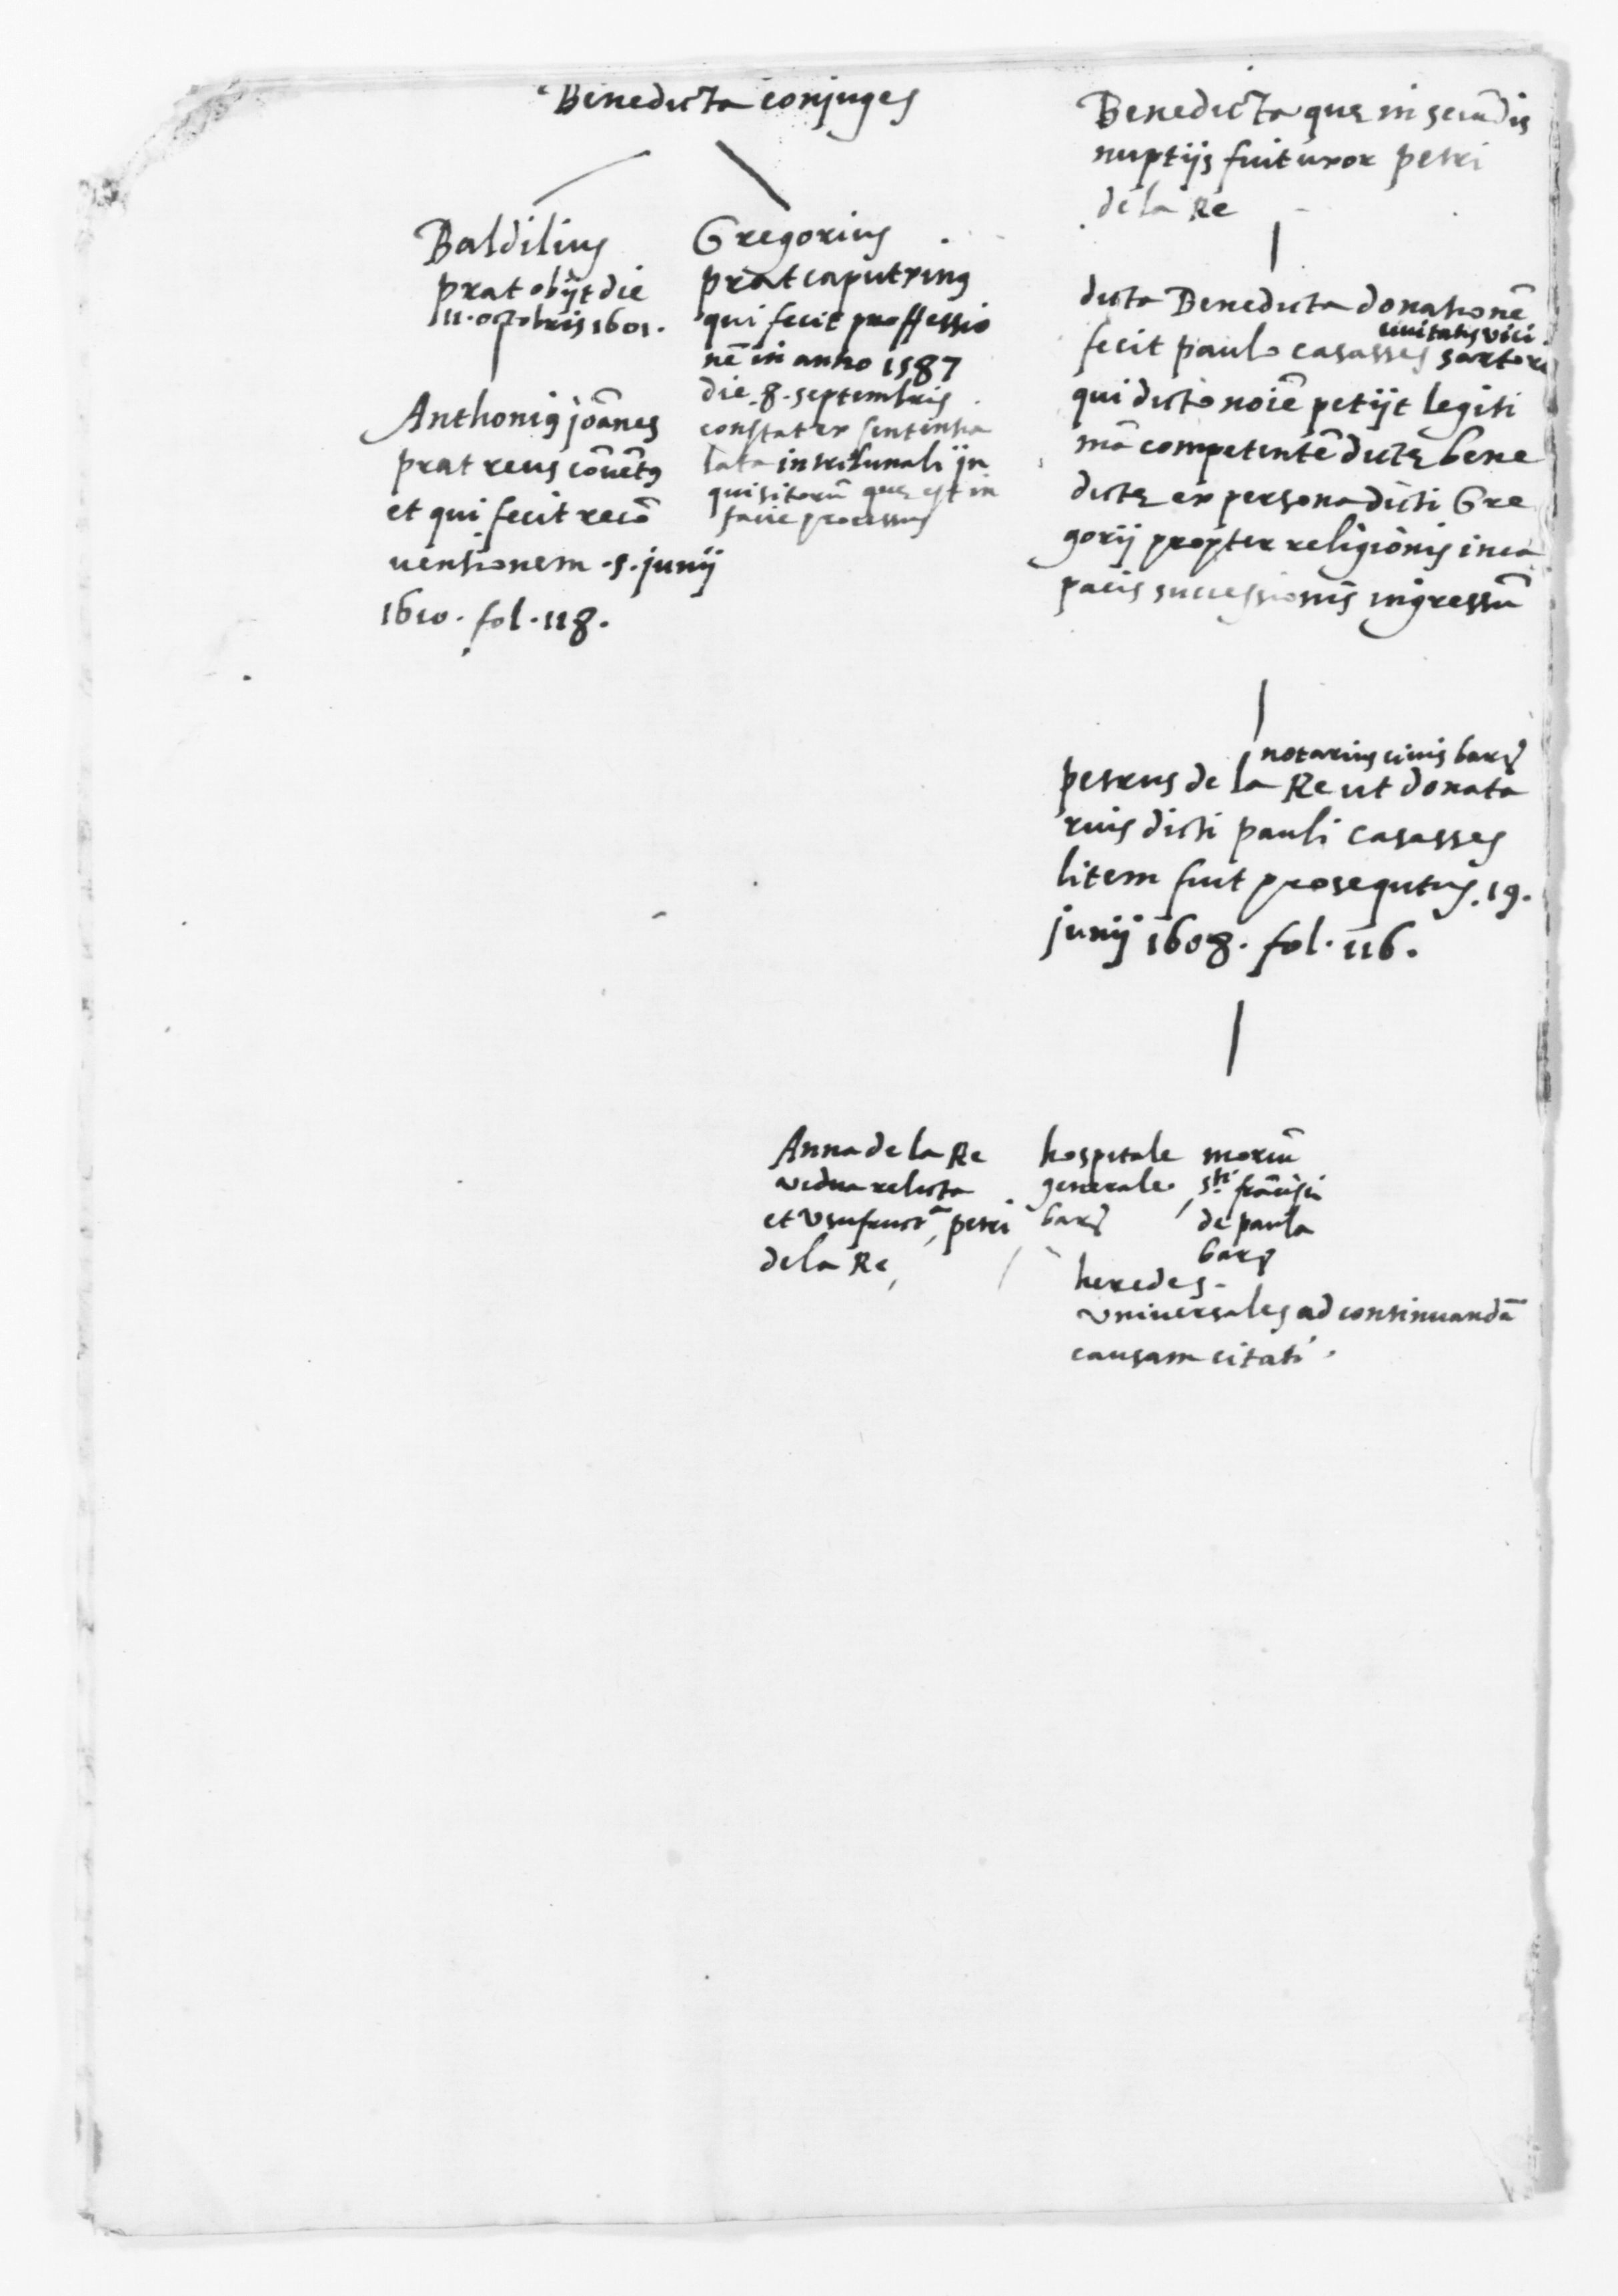 Benedicta conjuges
Baldilius
prat obijt die
11. octobris 1601.
Anthoniꝰ joãnes
prat reus cõuẽtꝰ
et qui fecit recõ
uentionem .5. junij
1610. fol. 118.
Gregorius
prat caputxinꝰ
qui fecit proffessio
nẽ in anno 1587
die .8. septembris
constat ex sententia
lata in tribunali jn
quisitorũ quę est in
facie processus
Benedicta quę in secũdis
nuptijs fuit uxor petri
de la Re
dicta Benedicta donationẽ
ciuitatis vici
fecit paulo casasses sartori
qui dicto noiẽ petijt legiti
mã competentẽ dictę bene
dictę ex persona dicti Gre
gorij propter religionis inca
pacis successionis ingressũ
notarius ciuis barꝫ
petrus de la Re ut donata
rius dicti pauli casasses
litem fuit prosequtus .19.
junij 1608. fol. 116.
Anna de la Re
vidua relicta
et Vsufructᵃ petri
de la Re
hospitale
generale
barꝫ
moriũ
sti. frãcisci
de paula
barꝫ
heredes
vniuersales ad continuandã
causam citati.